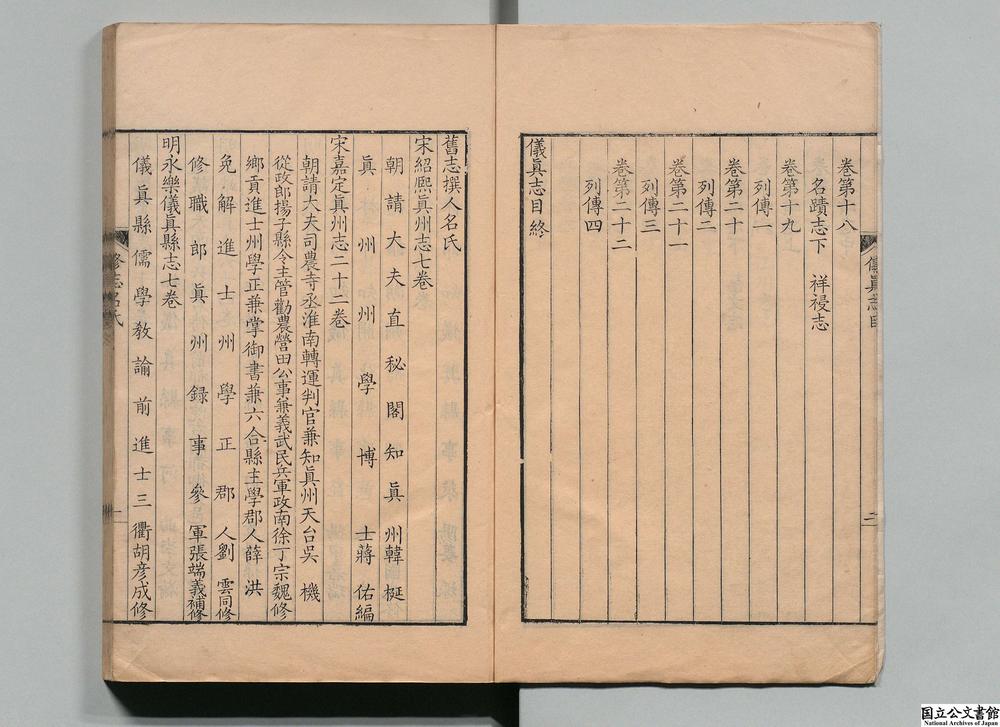 卷第十八
名蹟志下　祥祲志
卷第十九
列傳一
卷第二十
列傳二
卷第二十一
列傳三
卷第二十二
列傳四
儀眞志目終
儀眞志目
二
舊志撰人名氏
宋紹熙眞州志七卷
朝請大夫直秘閣知眞州韓梴
眞州州學博士蔣佑編
宋嘉定眞州志二十二卷
朝請大夫司農寺丞淮南轉運判官兼知眞州天台吳機
從政郎揚子縣令主管勸農營田公事兼義武民兵軍政南徐丁宗魏修
鄉貢進士州學正兼掌御書兼六合縣主學郡人薛洪
免解進士本州學正郡人劉雲同修
修職郎眞州錄事參軍張端義補修
明永樂儀眞縣志七卷
儀眞縣儒學敎諭前進士三衢胡彥成修
修志名氏
一
国立公文書館
National Archives of Japan